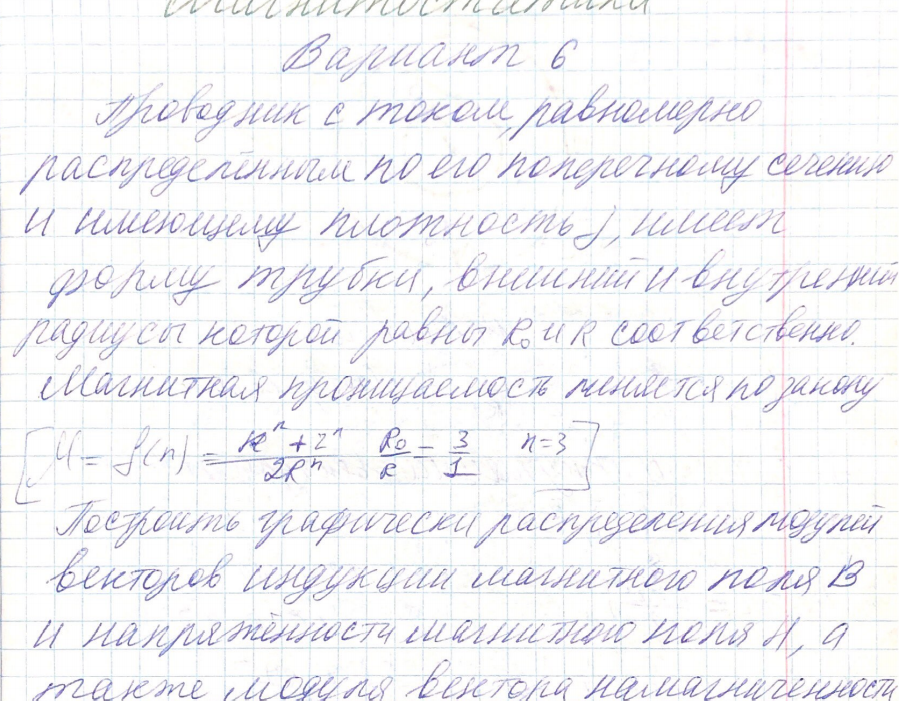 Магнитостатика
Вариант 6
Проводник с током, равномерно
распределённым по его поперечному сечению
и имеющему плотность j, имеет
форму трубки, внешний и внутренний
радиусы которой равны R₀ и R соответственно.
Магнитная проницаемость меняется по закону
[M = f(r) = (R^n + r^n)/(2R^n) R₀/R = 3/1 n=3]
Построить графически распределения модулей
векторов индукции магнитного поля B
и напряжённости магнитного поля H, а
также модуля вектора намагниченности